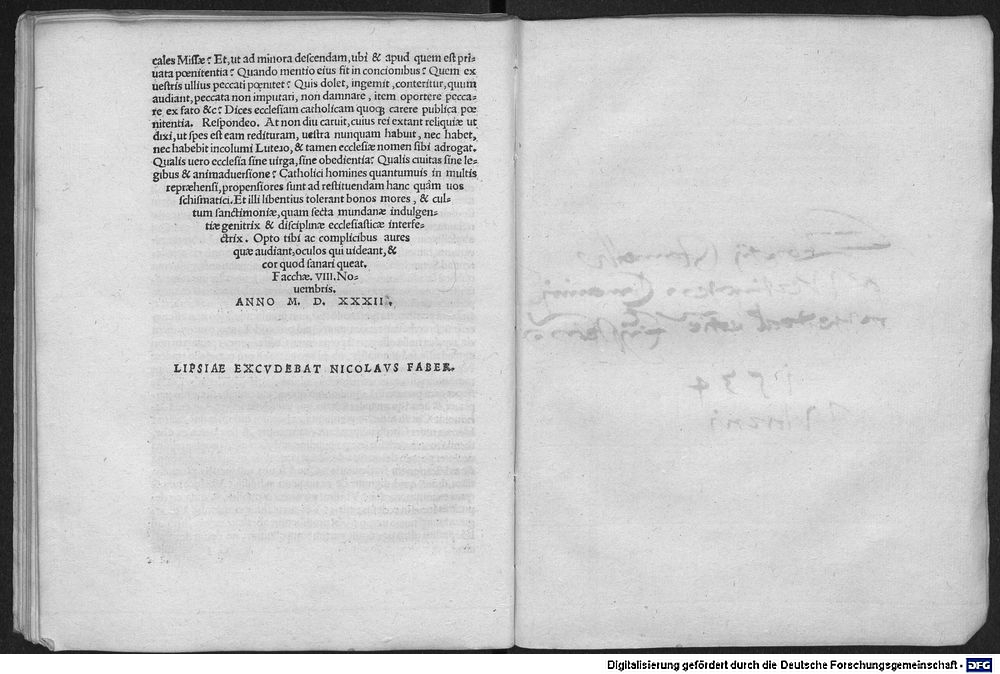 cales Missæ? Et, ut ad minora descendam, ubi & apud quem est pri-
uata pœnitentia? Quando mentio eius fit in concionibus? Quem ex
uestris ullius peccati pœnitet? Quis dolet, ingemit, conteritur, quum
audiant, peccata non imputari, non damnare, item oportere pecca-
re ex fato &c? Dices ecclesiam catholicam quoqꝫ carere publica pœ
nitentia. Respondeo. At non diu caruit, cuius rei extant reliquiæ ut
dixi, ut spes est eam redituram, uestra nunquam habuit, nec habet,
nec habebit incolumi Lutero, & tamen ecclesiæ nomen sibi adrogat.
Qualis uero ecclesia sine uirga, sine obedientia? Qualis ciuitas sine le-
gibus & animaduersione? Catholici homines quantumuis in multis
repræhensi, propensiores sunt ad restituendam hanc quâm uos
schismatici. Et illi libentius tolerant bonos mores, & cul-
tum sanctimoniæ, quam secta mundanæ indulgen-
tiæ genitrix & disciplinæ ecclesiasticæ interfe-
ctrix. Opto tibi ac complicibus aures
quæ audiant, oculos qui uideant, &
cor quod sanari queat.
Facchæ. VIII. No-
uembris.
ANNO M. D. XXXII.
LIPSIAE EXCVDEBAT NICOLAVS FABER.
1534
Digitalisierung gefördert durch die Deutsche Forschungsgemeinschaft - DFG